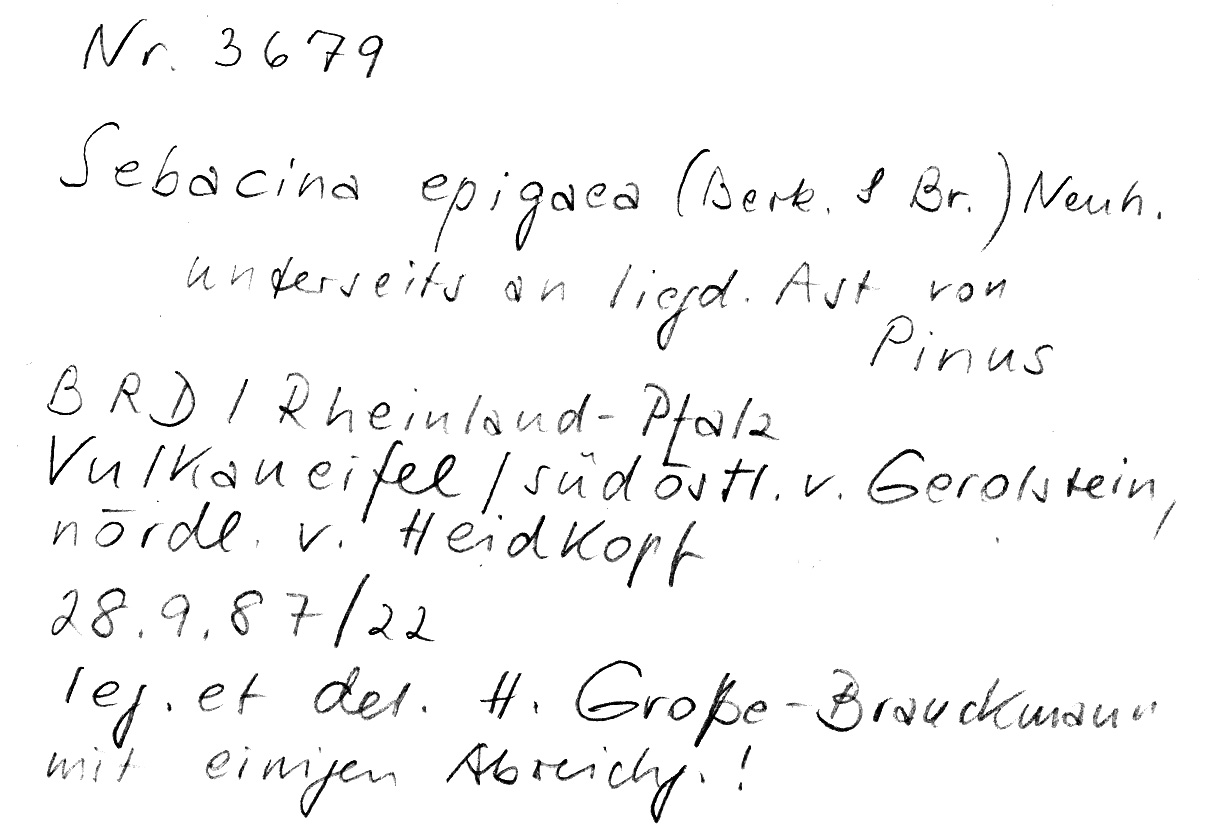 Nr. 3679
Sebacina epigaea (Berk. & Br.) Neuh.
unterseits an liegd. Ast von
Pinus
BRD / Rheinland-Pfalz
Vulkaneifel / südöstl. v. Gerolstein,
nördl. v. Heidkopf
28.9.87/22
leg. et det. H. Große-Brauckmann
mit einigen Abweichg.!